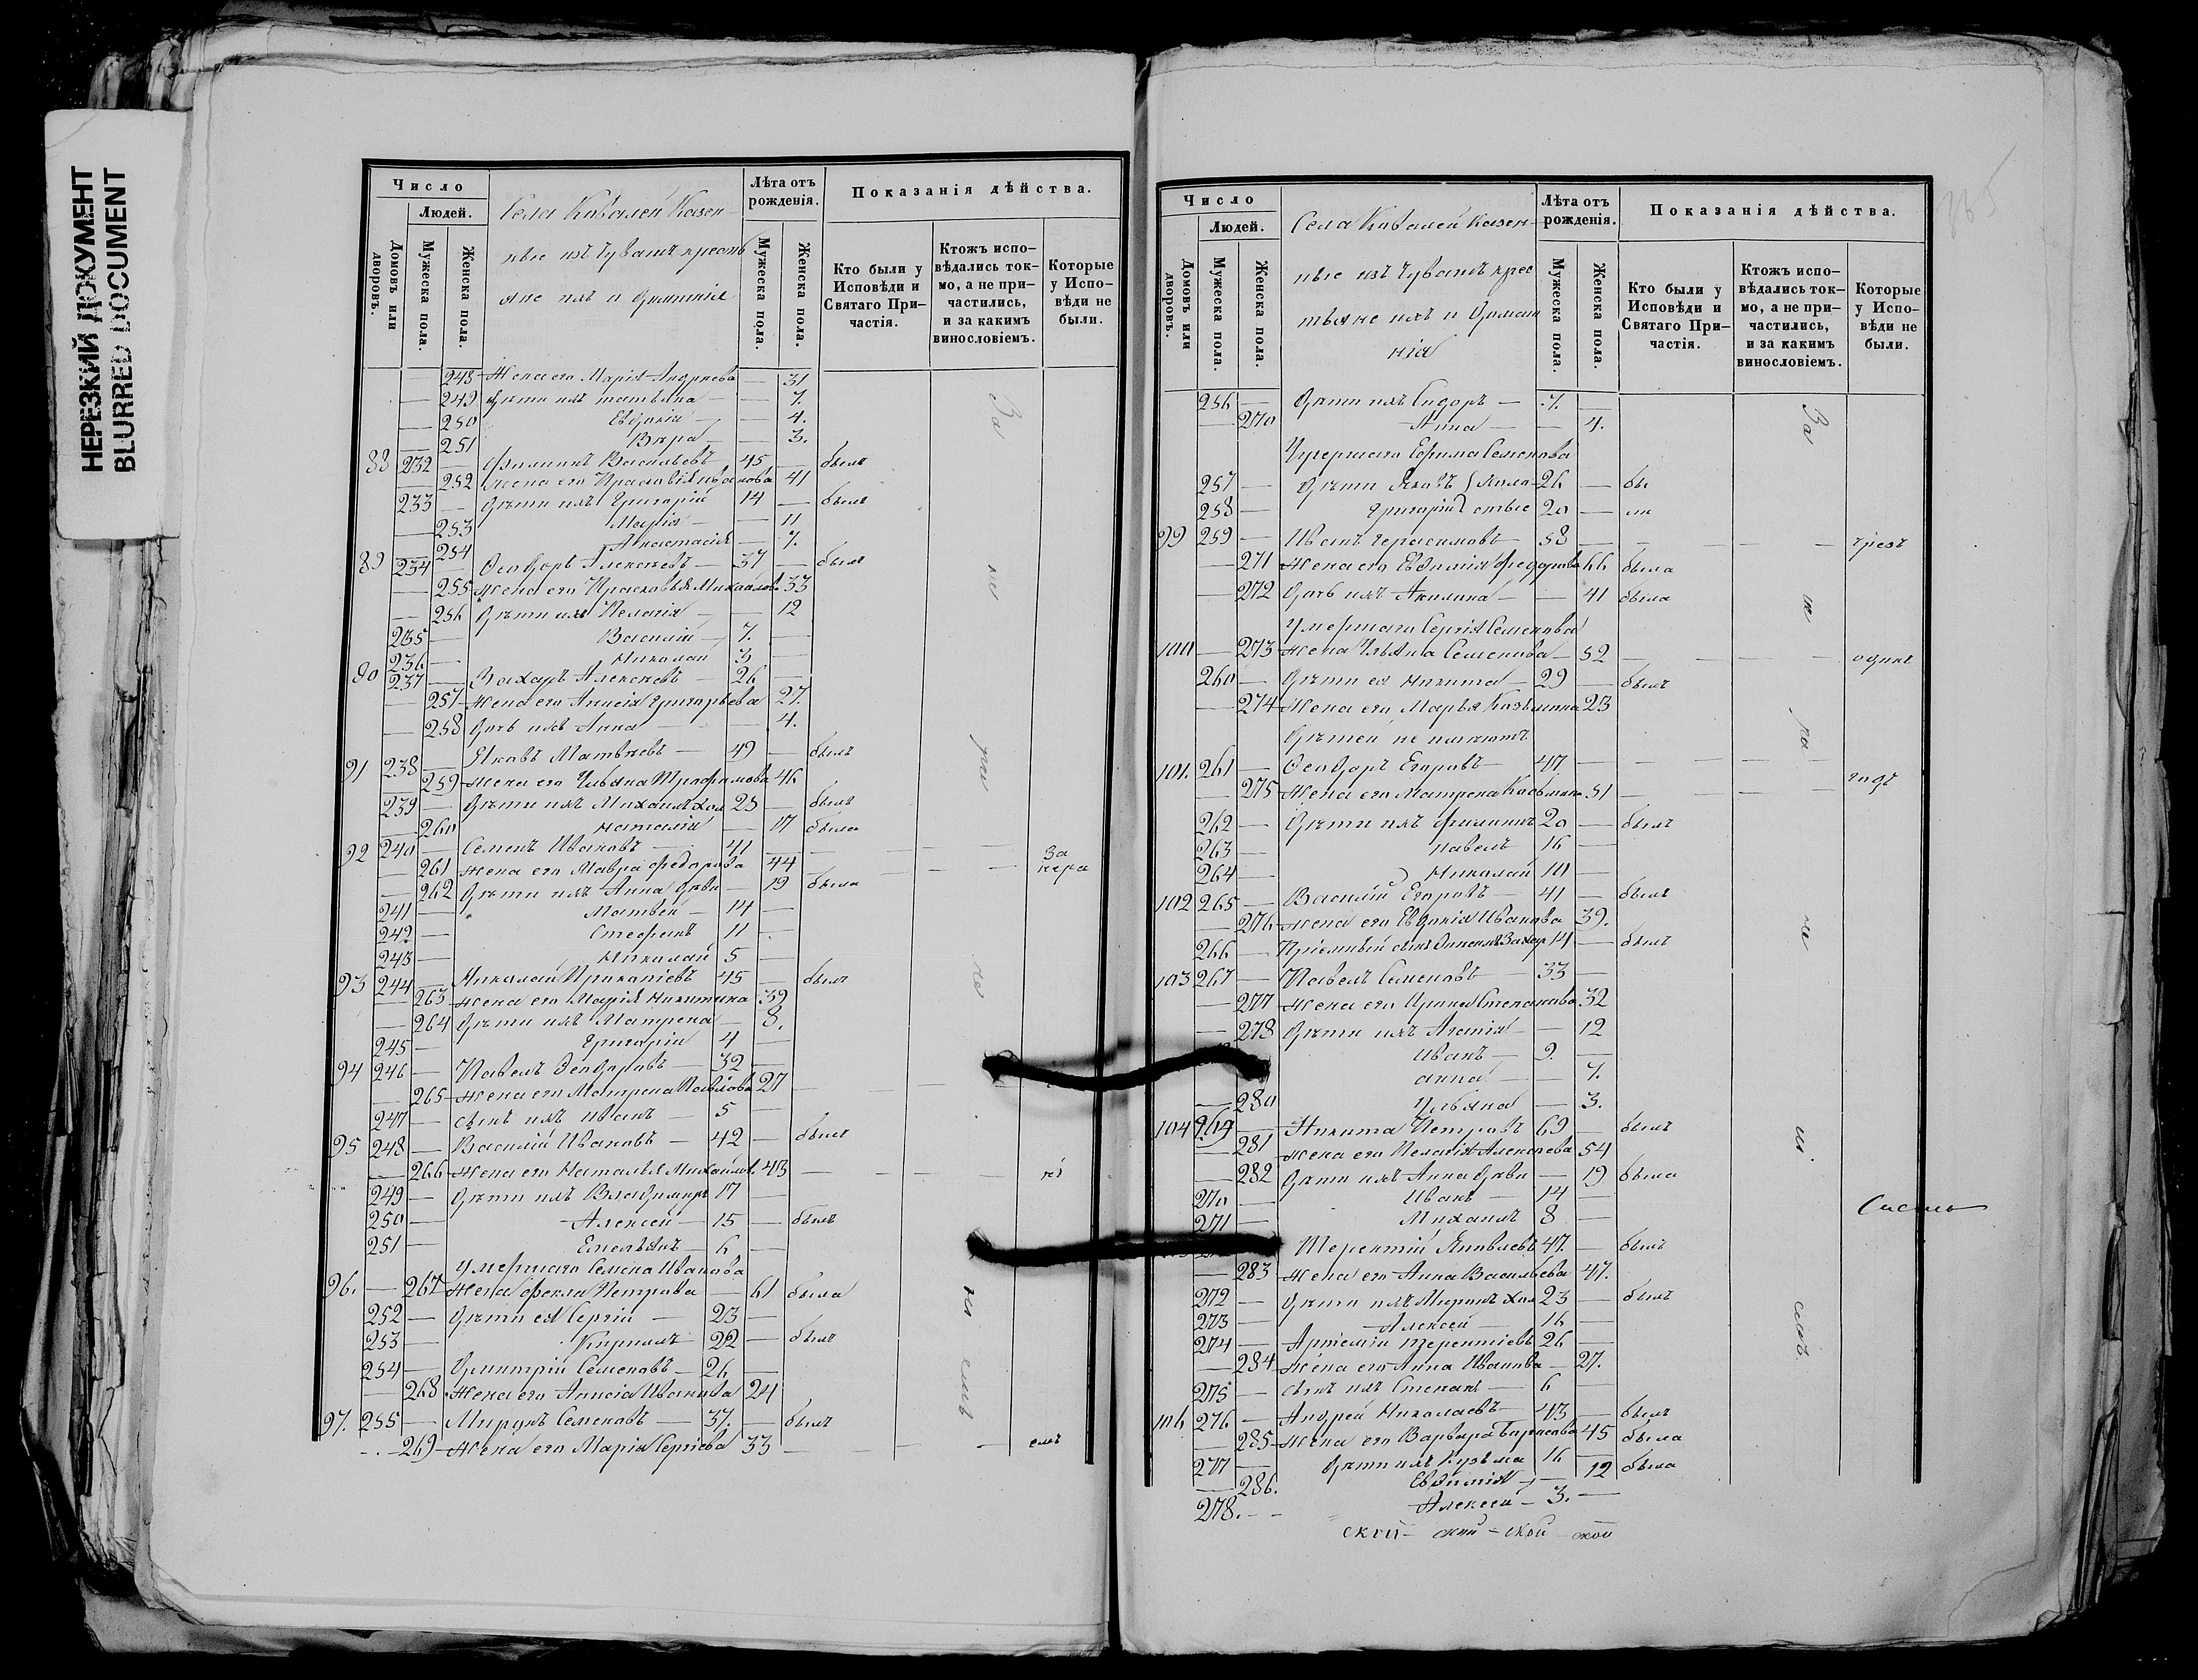 НЕРЕЗКИЙ ДОКУМЕНТ
BLURRED DOCUMENT
Число
Людей.
Домовъ или дворовъ.
Мужеска пола.
Женска пола.
Села Ковалей Казен-
ные изъ Чувашъ кресть
яне ихъ и домашнія
Лѣта отъ рожденія.
Мужеска пола.
Женска пола.
Показанія дѣйства.
Кто были у Исповѣди и Святаго При-частія.
Ктожъ испо-вѣдались ток-мо, а не при-частились, и за какимъ винословіемъ.
Которые у Испо-вѣди не были.
— 248 Жена его Марія Андреева — 31
— 249 Дѣти ихъ Татьяна — — 7.
— 250 Евдокія — — 4.
— 251 Вѣра — — 3.
88 232 — Филиппъ Васильевъ — 45 — былъ
— 252 Жена его Прасковія Иванова 41
233 — Дѣти ихъ Григорій 14 — былъ
— 253 Марія — — 11
— 254 Анастасія — 7.
89 234 — Ѳеодоръ Алексѣевъ — 37 — былъ
— 255 Жена его Прасковья Михайлова 33
— 256 Дѣти ихъ Пелагія — — 12
235 — Василій — 7. —
236 — Николай 3 —
90 237 — Захаръ Алексѣевъ — 26 —
— 257 Жена его Анисія Григорьева 27.
— 258 Дочь ихъ Анна — — 4.
91 238 — Яковъ Матвѣевъ — 49 — былъ
— 259 Жена его Ульяна Трофимова 46
239 — Дѣти ихъ Михаилъ хол 23 — былъ
— 260 Наталія — 17 была
92 240 — Семенъ Ивановъ — 41 — — — — За
— 261 Жена его Мавра Федорова 44 — — нера
— 262 Дѣти ихъ Анна дѣви — 19 была
241 — Матвей — 14 —
242 — Стефанъ 11 —
243 — Николай 5 —
93 244 — Николай Прокопіевъ 45 — былъ
— 263 Жена его Марія Никитина 39
— 264 Дѣти ихъ Матрена — 8.
245 — Григорій 4 —
94 246 — Павелъ Ѳеодоровъ — 32 —
— 265 Жена его Матрена Павлова 27 — — —
247 — сынъ ихъ Иванъ — 5 —
95 248 — Василій Ивановъ — 42 — былъ
— 266 Жена его Наталья Михайлов. 43 — — —
249 — Дѣти ихъ Владимиръ 17 —
250 — Алексей — 15 — былъ
251 — Емельянъ — 6 —
Умершаго Семена Иванова
96. — 267 Жена Фекла Петрова — 61 была
252 — Дѣти ея Сергій — 23 —
253 — Кирилъ — 22 — былъ
254 — Дмитрій Семеновъ — 26 —
— 268 Жена его Анисія Иванова 24
97. 255 — Миронъ Семеновъ — 37. — былъ
— 269 Жена его Марія Сергіева 33 — — — емъ
За
не
ра
Число
Людей.
Домовъ или дворовъ.
Мужеска пола.
Женска пола.
Села Ковалей Казен-
ные изъ Чувашъ крес
тьяне ихъ и Домаш
нія
Лѣта отъ рожденія.
Мужеска пола.
Женска пола.
Показанія дѣйства.
Кто были у Исповѣди и Святаго При-частія.
Ктожъ испо-вѣдались ток-мо, а не при-частились, и за какимъ винословіемъ.
Которые у Испо-вѣди не были.
256 — Дѣти ихъ Сидоръ — 7. —
— 270 Анна — — 4.
Умершаго Ефима Семенова
257 — Дѣти Яковъ 26 — бы
258 — Григорій 20 — ли
99 259 — Иванъ Герасимовъ — 58 — — — — чрез
— 271 Жена его Евдокія Федорова 66 была
— 272 Дочь ихъ Акилина — — 41 была
Умершаго Сергія Семенова
100 — 273 Жена Ульяна Семенова — 52 — — — одинъ
260 — Дѣти ея Никита — 29 — былъ
— 274 Жена его Марья Козьмина 23
Дѣтей не имѣютъ
101. 261 — Ѳеодоръ Егоровъ — 47 — — — —
— 275 Жена его Матрена Косьмина 51 — — — годъ
262 — Дѣти ихъ Филиппъ 20 — былъ
263 — Павелъ 16 —
264 — Николай 10 —
102 265 — Василій Егоровъ — 41 — былъ
— 276 Жена его Евдокія Иванова 39.
266 — Пріемный сынъ Захар 14 — былъ
103 267 — Павелъ Семеновъ — 33 —
— 277 Жена его Ирина Степанова 32
— 278 Дѣти ихъ Агафія — — 12
Иванъ — 9. —
Анна — — 7.
— 280 Ульяна — 3.
104 269 — Никита Петровъ 69 — былъ
— 281 Жена его Пелагія Алексѣева 54
— 282 Дѣти ихъ Анна дѣви — 19 была
270 — Иванъ — 14 —
271 — Михаилъ 8 —
Терентій Яковлевъ 47. — былъ
— 283 Жена его Анна Васильева 47.
272 — Дѣти ихъ Миронъ хол 23 — былъ
273 — Алексей — 16 —
274 — Артемій Терентіевъ 26 —
— 284 Жена его Анна Иванова — 27.
275 — сынъ ихъ Степанъ — 6 —
106 276 — Андрей Николаевъ — 43 — былъ
— 285 Жена его Варвара Борисова 45 была
277 — Дѣти ихъ Кузьма 16 —
— 286. Евдокія — 12 была
278. — Алексей — 3. —
ской — ской — ской — ской
За
не
ра